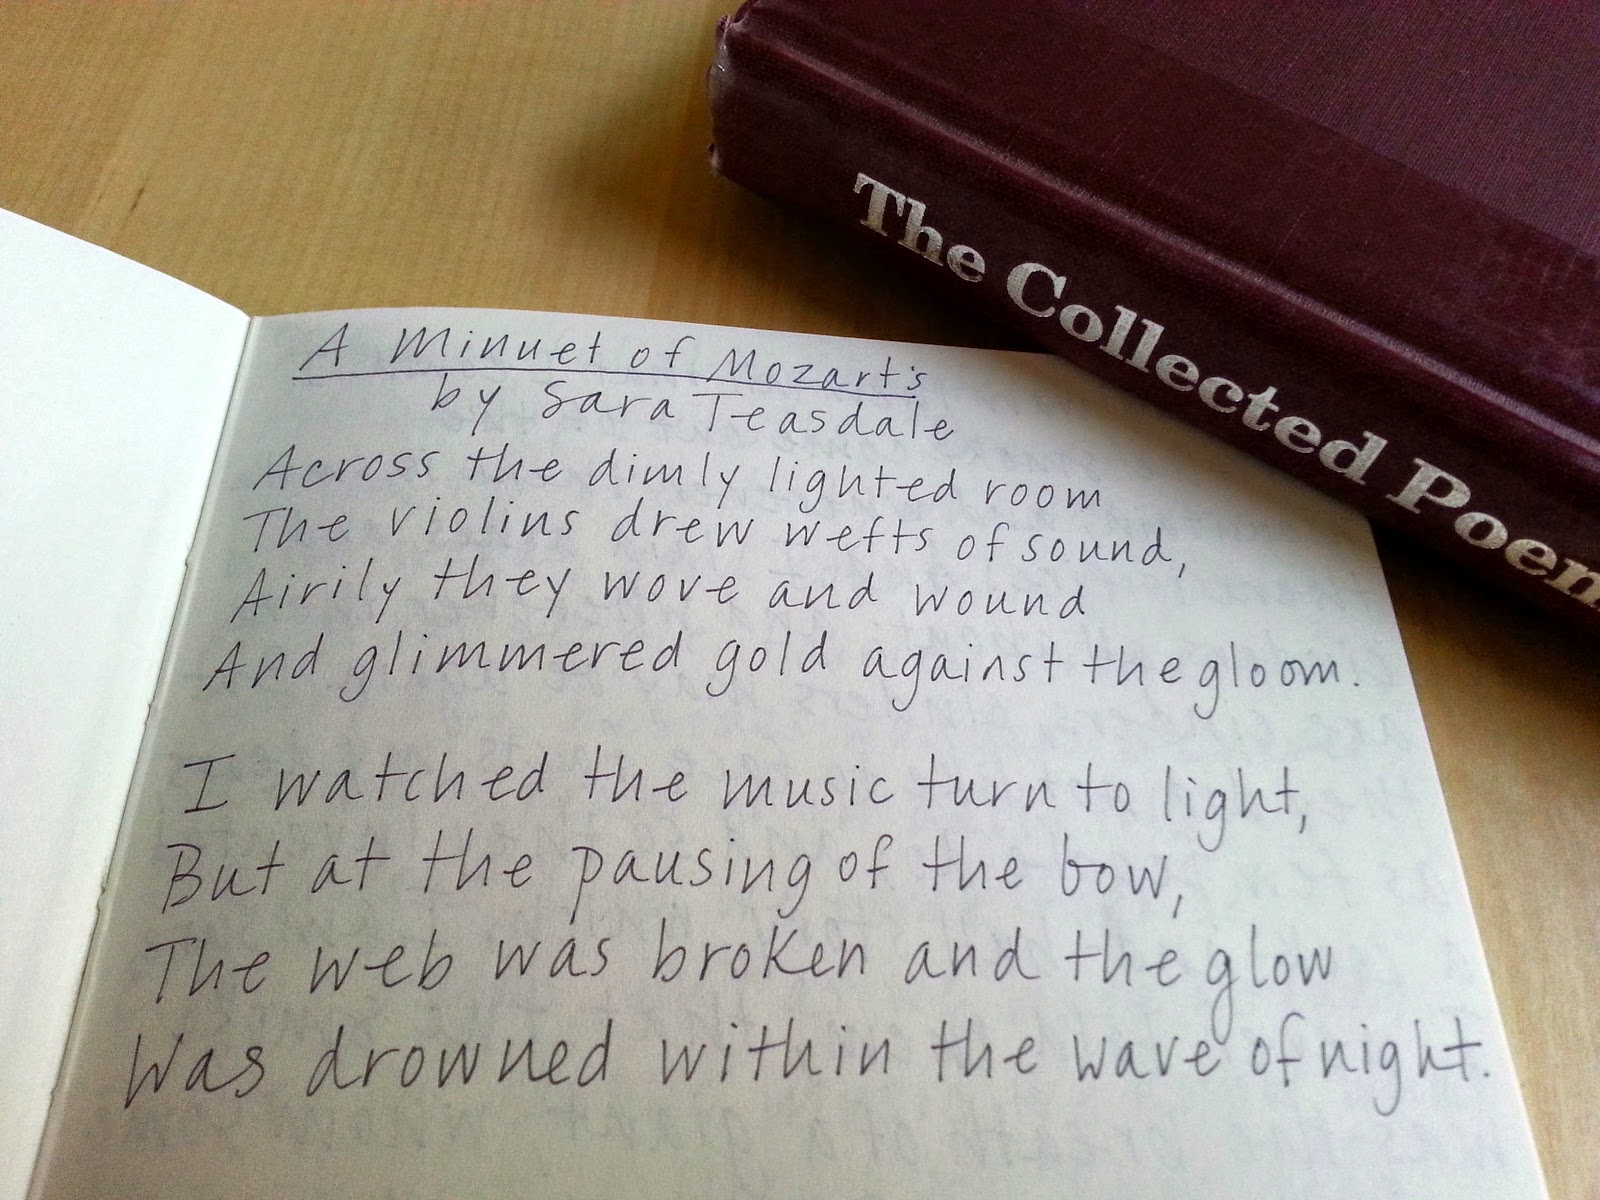 The Collected Poem
A Minuet of Mozart's
by Sara Teasdale
Across the dimly lighted room
The violins drew wefts of sound,
Airily they wove and wound
And glimmered gold against the gloom.
I watched the music turn to light,
But at the pausing of the bow,
The web was broken and the glow
Was drowned within the wave of night.